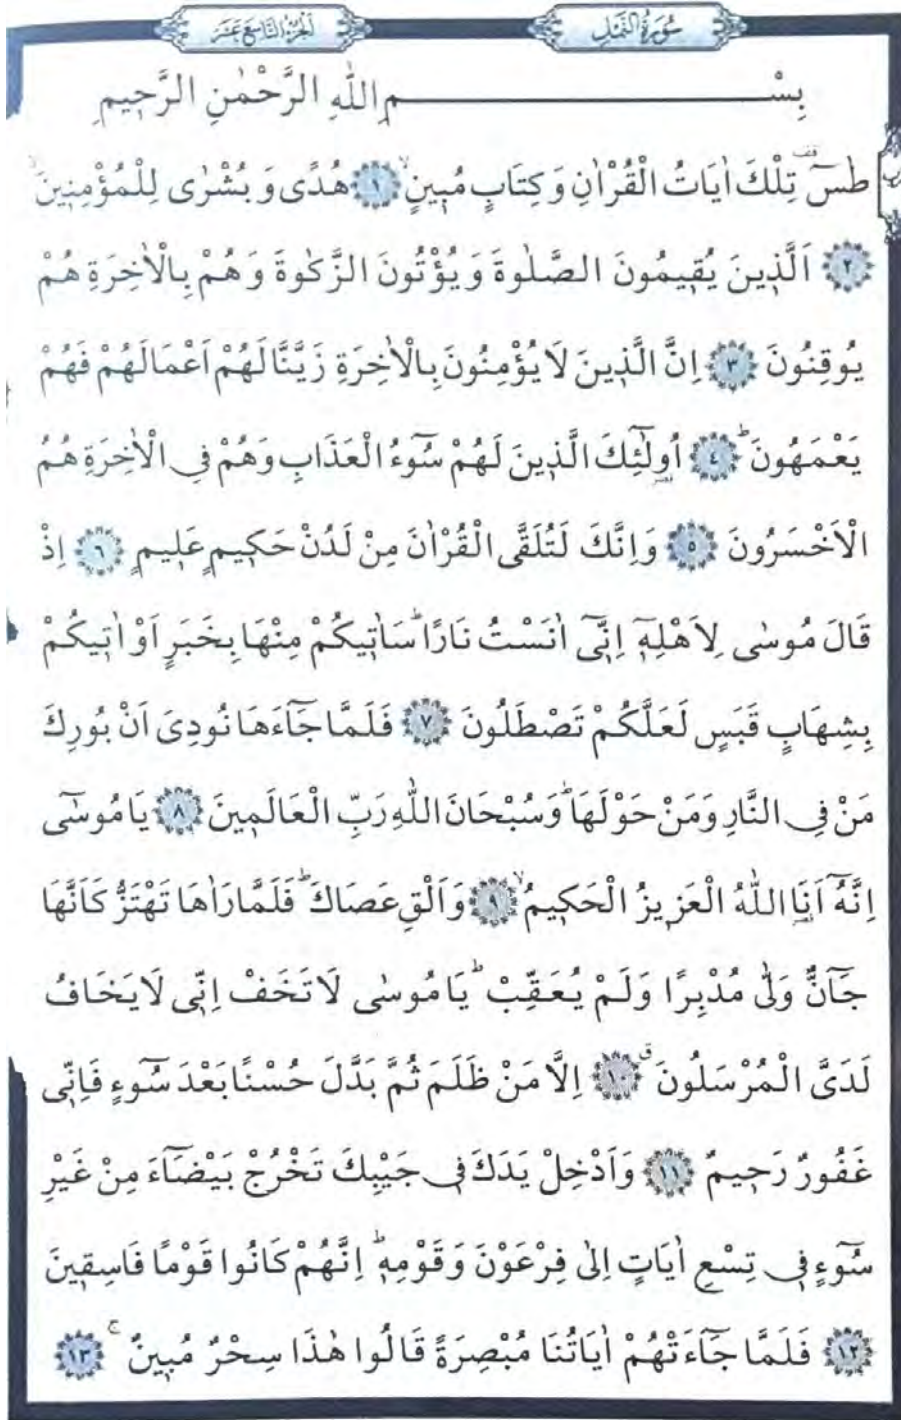 سُورَةُ النَّمْلِ
اَلْجُزْءُ التَّاسِعَ عَشَرَ
بِسْمِ اللّٰهِ الرَّحْمٰنِ الرَّحٖيمِ
طٰسٓ تِلْكَ اٰيَاتُ الْقُرْاٰنِ وَكِتَابٍ مُبٖينٍۙ ﴿١﴾ هُدًى وَبُشْرٰى لِلْمُؤْمِنٖينَۙ
﴿٢﴾ اَلَّذٖينَ يُقٖيمُونَ الصَّلٰوةَ وَيُؤْتُونَ الزَّكٰوةَ وَهُمْ بِالْاٰخِرَةِ هُمْ
يُوقِنُونَ ﴿٣﴾ اِنَّ الَّذٖينَ لَا يُؤْمِنُونَ بِالْاٰخِرَةِ زَيَّنَّا لَهُمْ اَعْمَالَهُمْ فَهُمْ
يَعْمَهُونَؕ ﴿٤﴾ اُو۬لٰٓئِكَ الَّذٖينَ لَهُمْ سُٓوءُ الْعَذَابِ وَهُمْ فِي الْاٰخِرَةِ هُمُ
الْاَخْسَرُونَ ﴿٥﴾ وَاِنَّكَ لَتُلَقَّى الْقُرْاٰنَ مِنْ لَدُنْ حَكٖيمٍ عَلٖيمٍ ﴿٦﴾ اِذْ
قَالَ مُوسٰى لِاَهْلِهٖٓ اِنّٖٓي اٰنَسْتُ نَارًاؕ سَاٰتٖيكُمْ مِنْهَا بِخَبَرٍ اَوْ اٰتٖيكُمْ
بِشِهَابٍ قَبَسٍ لَعَلَّكُمْ تَصْطَلُونَ ﴿٧﴾ فَلَمَّا جَٓاءَهَا نُودِيَ اَنْ بُورِكَ
مَنْ فِي النَّارِ وَمَنْ حَوْلَهَاؕ وَسُبْحَانَ اللّٰهِ رَبِّ الْعَالَمٖينَ ﴿٨﴾ يَا مُوسٰٓى
اِنَّهُٓ اَنَا اللّٰهُ الْعَزٖيزُ الْحَكٖيمُۙ ﴿٩﴾ وَاَلْقِ عَصَاكَؕ فَلَمَّا رَاٰهَا تَهْتَزُّ كَاَنَّهَا
جَٓانٌّ وَلّٰى مُدْبِرًا وَلَمْ يُعَقِّبْؕ يَا مُوسٰى لَا تَخَفْ اِنّٖي لَا يَخَافُ
لَدَيَّ الْمُرْسَلُونَۗ ﴿١٠﴾ اِلَّا مَنْ ظَلَمَ ثُمَّ بَدَّلَ حُسْنًا بَعْدَ سُٓوءٍ فَاِنّٖي
غَفُورٌ رَحٖيمٌ ﴿١١﴾ وَاَدْخِلْ يَدَكَ فٖي جَيْبِكَ تَخْرُجْ بَيْضَٓاءَ مِنْ غَيْرِ
سُٓوءٍ فٖي تِسْعِ اٰيَاتٍ اِلٰى فِرْعَوْنَ وَقَوْمِهٖؕ اِنَّهُمْ كَانُوا قَوْمًا فَاسِقٖينَ
﴿١٢﴾ فَلَمَّا جَٓاءَتْهُمْ اٰيَاتُنَا مُبْصِرَةً قَالُوا هٰذَا سِحْرٌ مُبٖينٌۚ ﴿١٣﴾